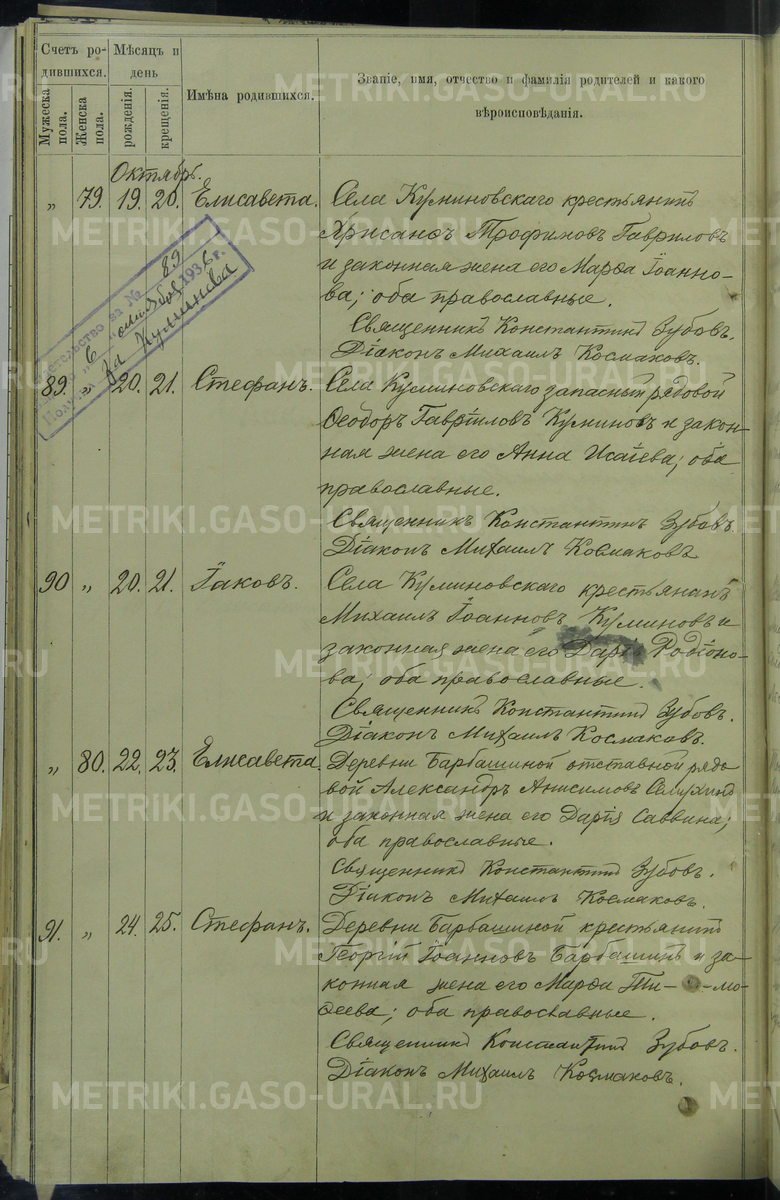 Счетъ ро-
дившихся.
Мѣсяцъ и
день
Мужеска
пола.
Женска
пола.
рожденія.
крещенія.
Имѣна родившихся.
Званіе, имя, отчество и фамилія родителей и какого
вѣроисповѣданія.
Октябрь.
„ 79. 19. 20. Елисавета. Села Куминовскаго крестьянинъ
Хрисанѳъ Трофимовъ Гавриловъ
и законная жена его Марѳа Іоанно-
ва; оба православные.
Священникъ Константинъ Зубовъ.
Діаконъ Михаилъ Космаковъ.
за № 89
6 1936 г.
Куминова
89. „ 20. 21. Стефанъ. Села Куминовскаго запасный рядовой
Ѳеодоръ Гавріиловъ Куминовъ и закон-
ная жена его Анна Исаіева; оба
православные.
Священникъ Константинъ Зубовъ.
Діаконъ Михаилъ Космаковъ
90 „ 20. 21. Іаковъ. Села Куминовскаго крестьянинъ
Михаилъ Іоанновъ Куминовъ и
законная жена его Дарія Родіоно-
ва; оба православные.
Священникъ Константинъ Зубовъ.
Діаконъ Михаилъ Космаковъ.
„ 80. 22. 23. Елисавета. Деревни Барбашиной отставной рядо-
вой Александръ Анисимовъ
и законная жена его Дарія Саввина;
оба православные.
Священникъ Константинъ Зубовъ.
Діаконъ Михаилъ Космаковъ.
91. „ 24. 25. Стефанъ. Деревни Барбашиной крестьянинъ
Георгій Іоанновъ Барбашинъ и за-
конная жена его Марѳа Ти- -мо-
ѳеева; оба православные.
Священникъ Константинъ Зубовъ.
Діаконъ Михаилъ Космаковъ.
METRIKI.GASO-URAL.RU